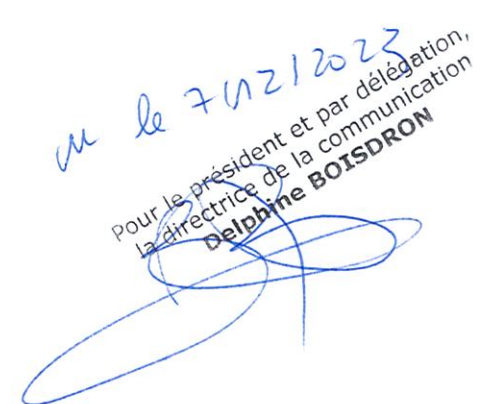 vu le 7/12/2023
Pour le président et par délégation,
la directrice de la communication
Delphine BOISDRON